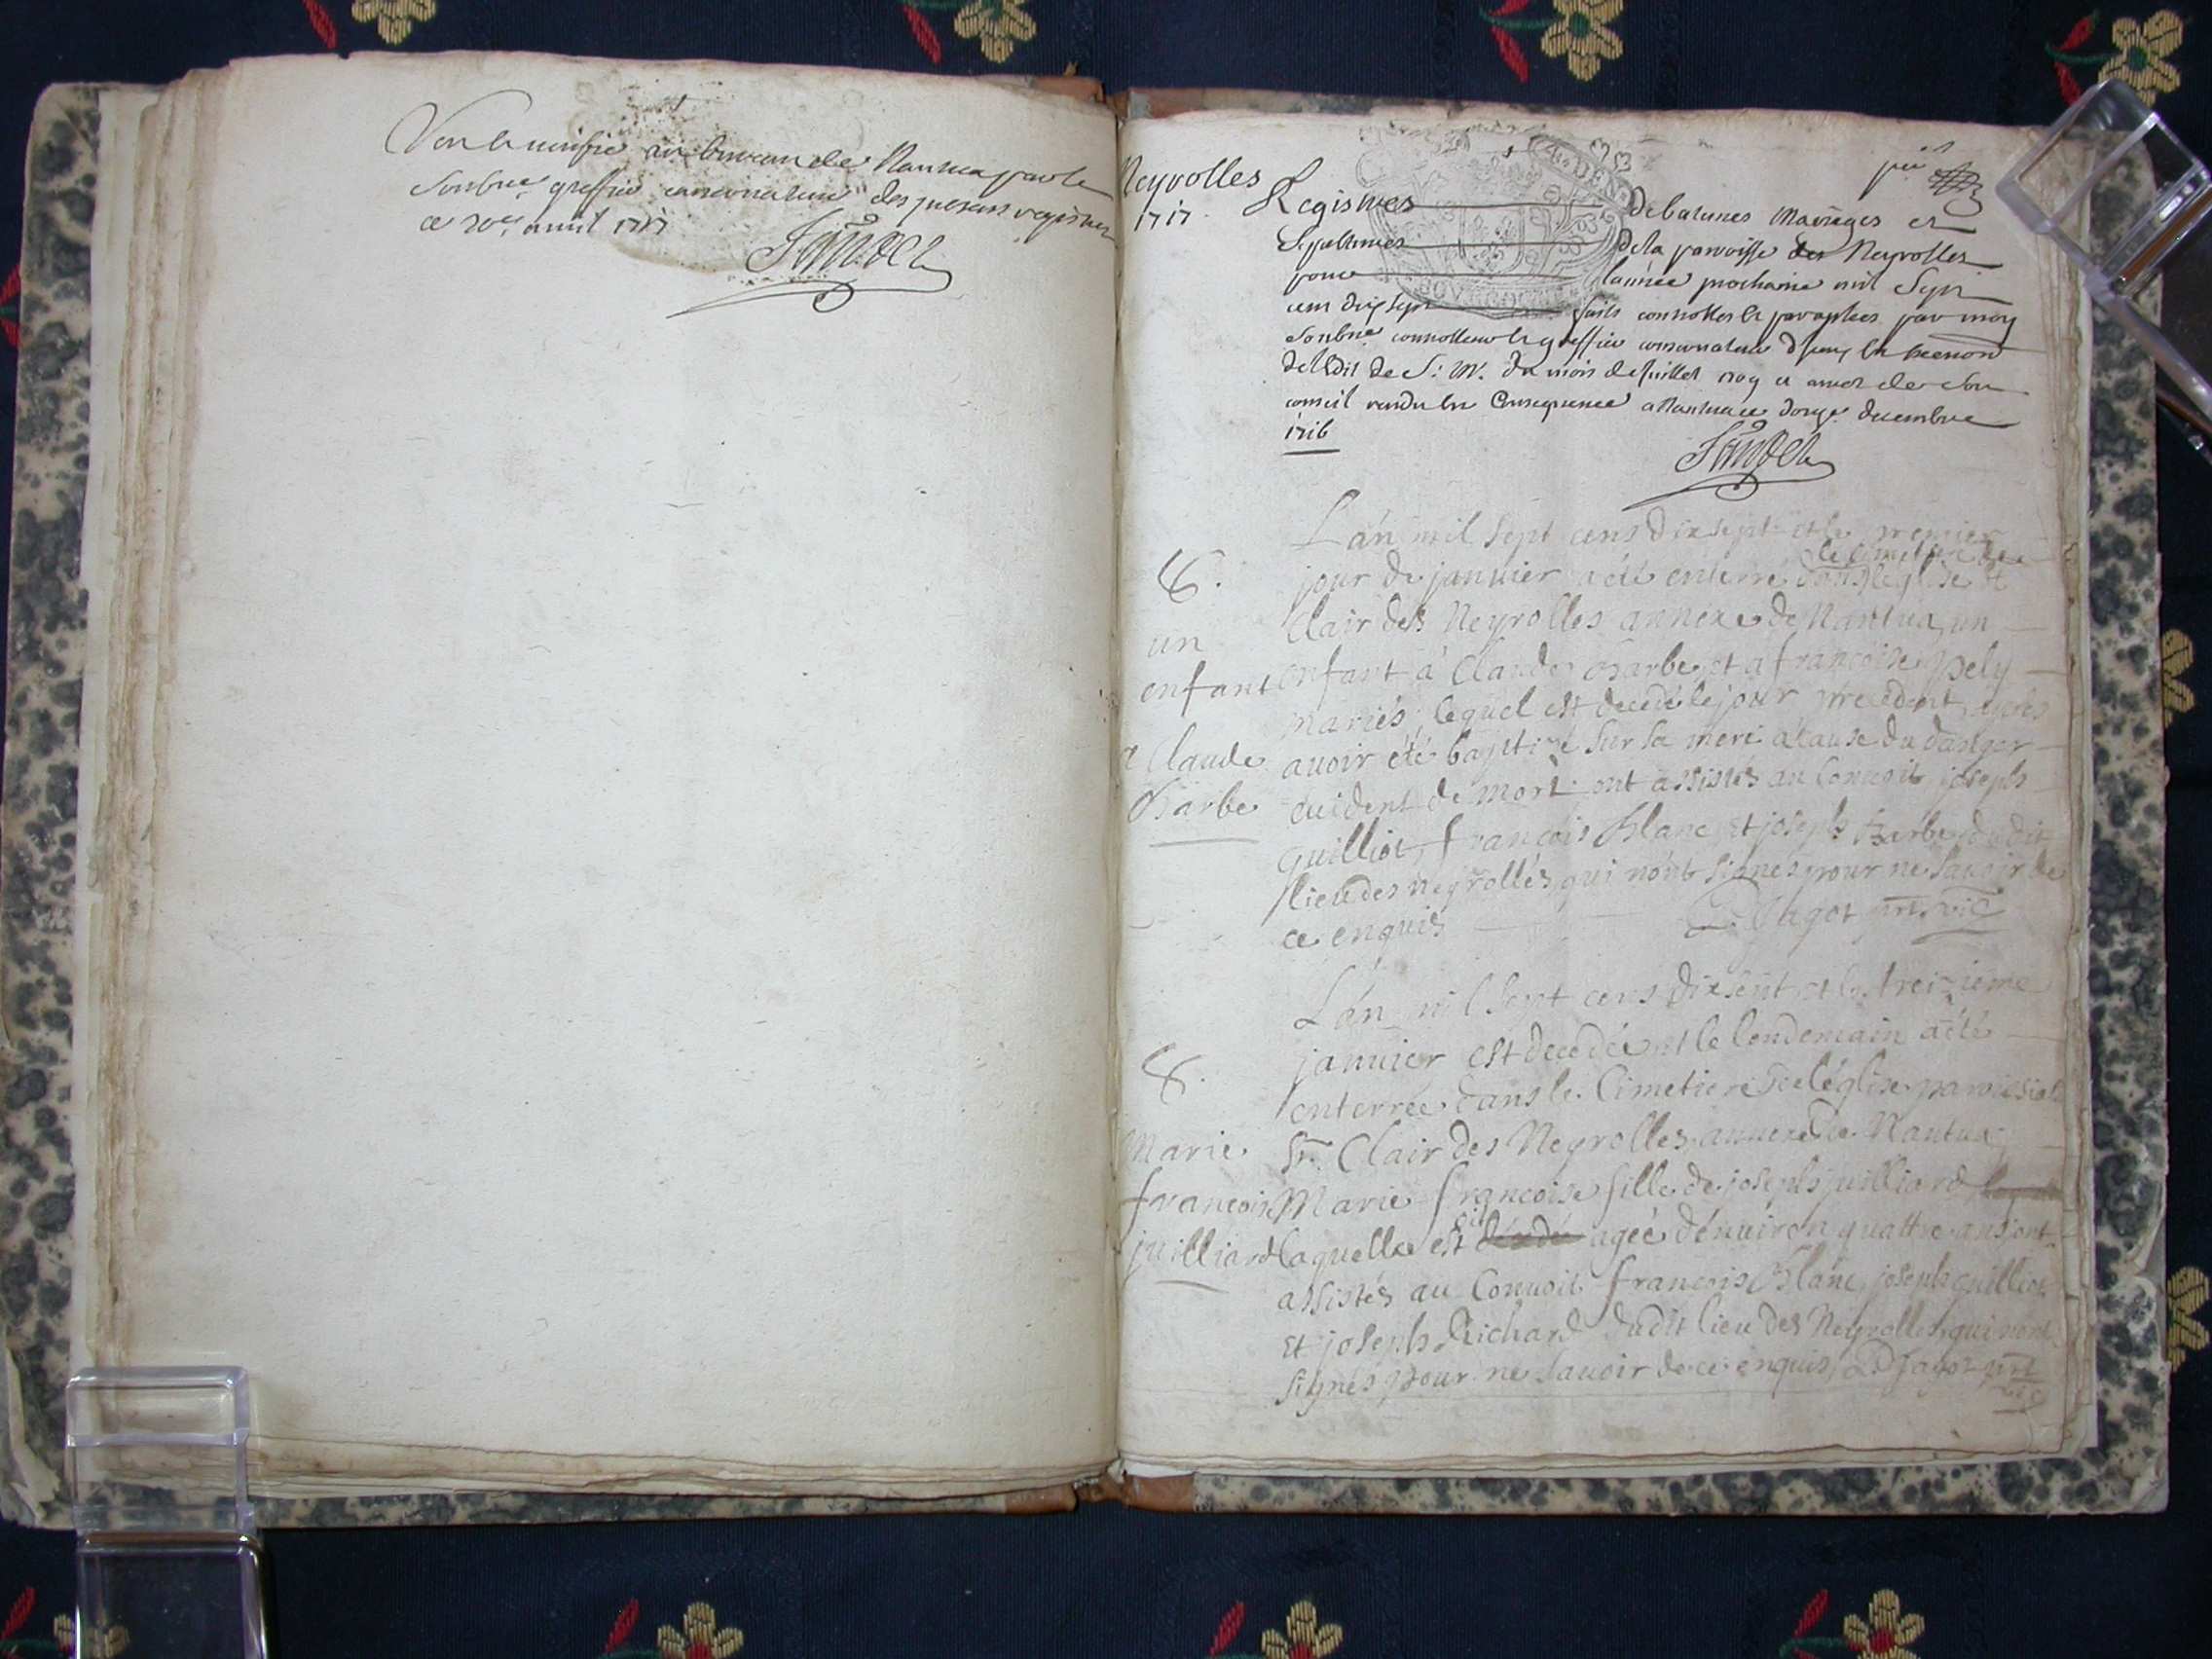 Veu et verifié au bureau de Nantua par le
soubne greffier conservateur des presens registres
ce 20e avril 1717
Neyrolles
1717
Registres de batumes mariages et
sepultures de la parroisse des Neyrolles
pour lannée prochaine mil sept
cent dix sept cottes et paraphes par moy
soubne controlleur et greffier conservateur
de ledit de S: M: du mois de Juillet 1709 et arrest de son
conseil rendu en consequence a Nantua ce douze decembre
1716
L'an mil sept cens dix sept et le premier
le cimetiere de
jour de janvier a été enterré dans leglise St
Clair des Neyrolles annexe de Nantua, un
enfant à Claude Barbe et a francoise pely
mariés; lequel est decedé le jour precedent, apres
avoir été baptizé sur sa mere a cause du danger
evident de mort ont assistés au Convoit joseph
guilliot, françois Blanc, et joseph Barbe du dit
lieu des neyrolles qui n'ont signes pour ne sauoir de
ce enquis D. Jagot prt vic
un
enfant
a Claude
Barbe
L'an mil sept cens dix sept et le treizieme
janvier est decedée et le lendemain a été
enterrée dans le Cimetiere de l'église paroissiale
St. Clair des Neyrolles annexe de Nantua
Marie francoise fille de joseph juilliard
laquelle est agée d'enuiron quattre ans ont
assistés au Convoit francois Blanc, joseph guilliot
Et joseph Richard dudit lieu des Neyrolles, qui n'ont
signés pour ne sauoir de ce enquis, D Jagot prt
vic
Marie
francoise
juilliard